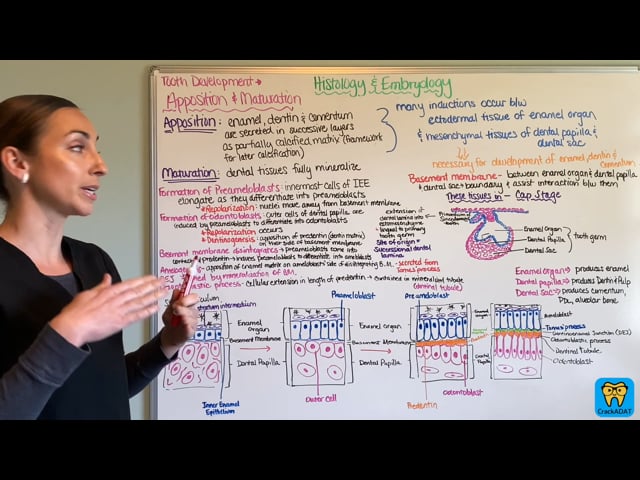 Tooth Development → Histology & Embryology
Apposition & Maturation
Apposition: enamel, dentin & cementum
are secreted in successive layers
as partially calcified matrix (framework
for later calcification)
Maturation: dental tissues fully mineralize
many inductions occur b/w
ectodermal tissue of enamel organ
& mesenchymal tissues of dental papilla &
dental sac
necessary for development of enamel, dentin & cementum
Basement membrane - between enamel organ & dental papilla
& dental sac → boundary & assist interaction b/w them
These tissues in Cap Stage
Formation of Preameloblasts: innermost cells of IEE
elongate as they differentiate into preameloblasts
* Repolarization: nuclei move away from basement membrane
Formation of odontoblasts: outer cells of dental papilla are
induced by preameloblasts to differentiate into odontoblasts
* Repolarization occurs
* Dentinogenesis: apposition of predentin (dentin matrix)
on their side of basement membrane
Basement membrane disintegrates: preameloblasts come into
contact w/ predentin → induces preameloblasts to differentiate into ameloblasts
apposition of enamel matrix on ameloblasts' side of disintegrating B.M.
secreted from
Tomes' process
by mineralization of B.M.
process - cellular extension in length of predentin → contained in mineralized tubule
(dentinal tubule)
extension of
dental lamina into
ectomesenchyme
lingual to primary
tooth germ
Site of origin =
Successional dental
lamina
Primordium
Succedaneous
tooth
Enamel Organ
Dental Papilla
Dental Sac
tooth germ
Enamel organ → produces enamel
Dental papilla → produces Dentin & Pulp
Dental sac → produces cementum,
PDL, alveolar bone.
Stratum intermedium
Enamel
Organ
Basement Membrane
Dental Papilla
Inner Enamel
Epithelium
Preameloblast
Enamel Organ
Basement Membrane
Dental Papilla
Outer Cell
Preameloblast
Predentin
Odontoblast
Ameloblast
Tomes process
Dentinoenamel Junction (DEJ)
Odontoblastic process
Dentinal Tubule
Odontoblast
CrackADAT